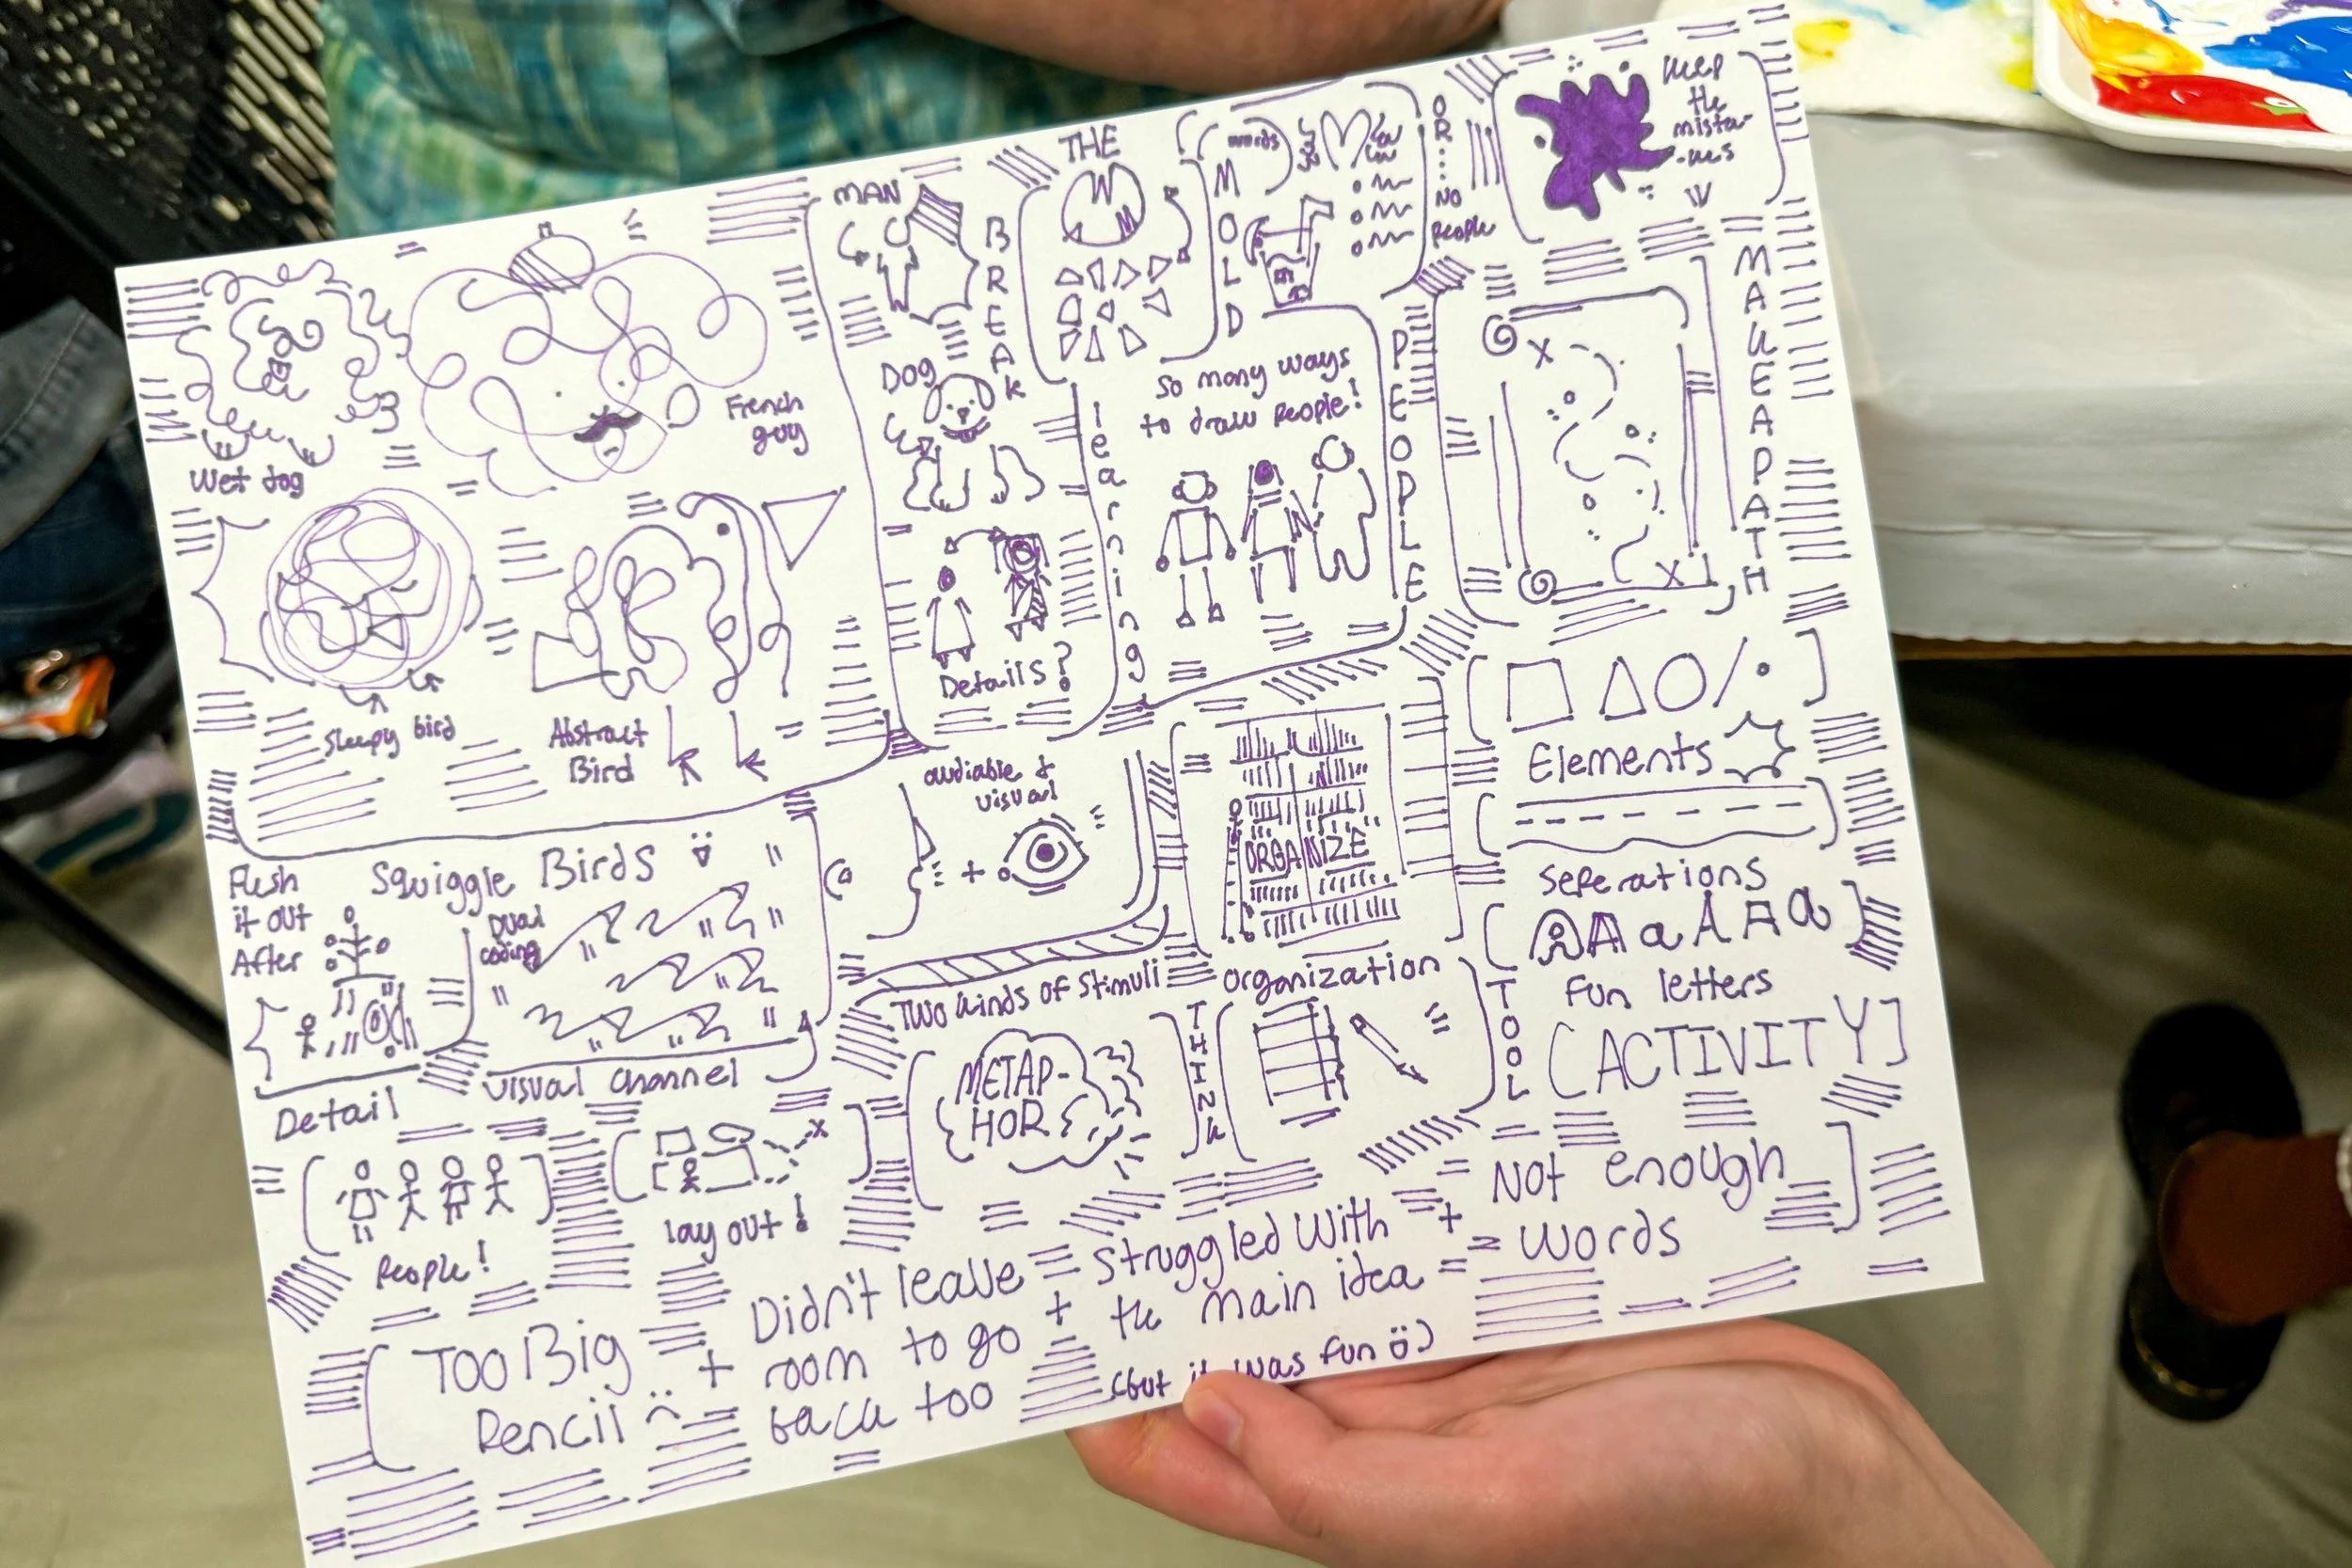 Wet dog
French
guy
Sleepy bird
Abstract
Bird
Squiggle Birds
MAN
Dog
BREAK
THE
MOLD
words
Details?
learning
So many ways
to draw people!
PEOPLE
OR...NO
people
keep
the
mista-
-kes
MAKE A PATH
Flesh
it out
After
Detail
Dual
coding
Visual channel
audiable +
visual
Two kinds of stimuli
ORGANIZE
organization
Elements
Seperations
A A a A A a
Fun letters
[ACTIVITY]
People!
lay out!
METAP-
HOR
THINK
TOOL
Too Big
Pencil :(
+
Didn't leave
room to go
back too
+
Struggled with
the main idea
+
Not enough
words
(but it was fun ü)